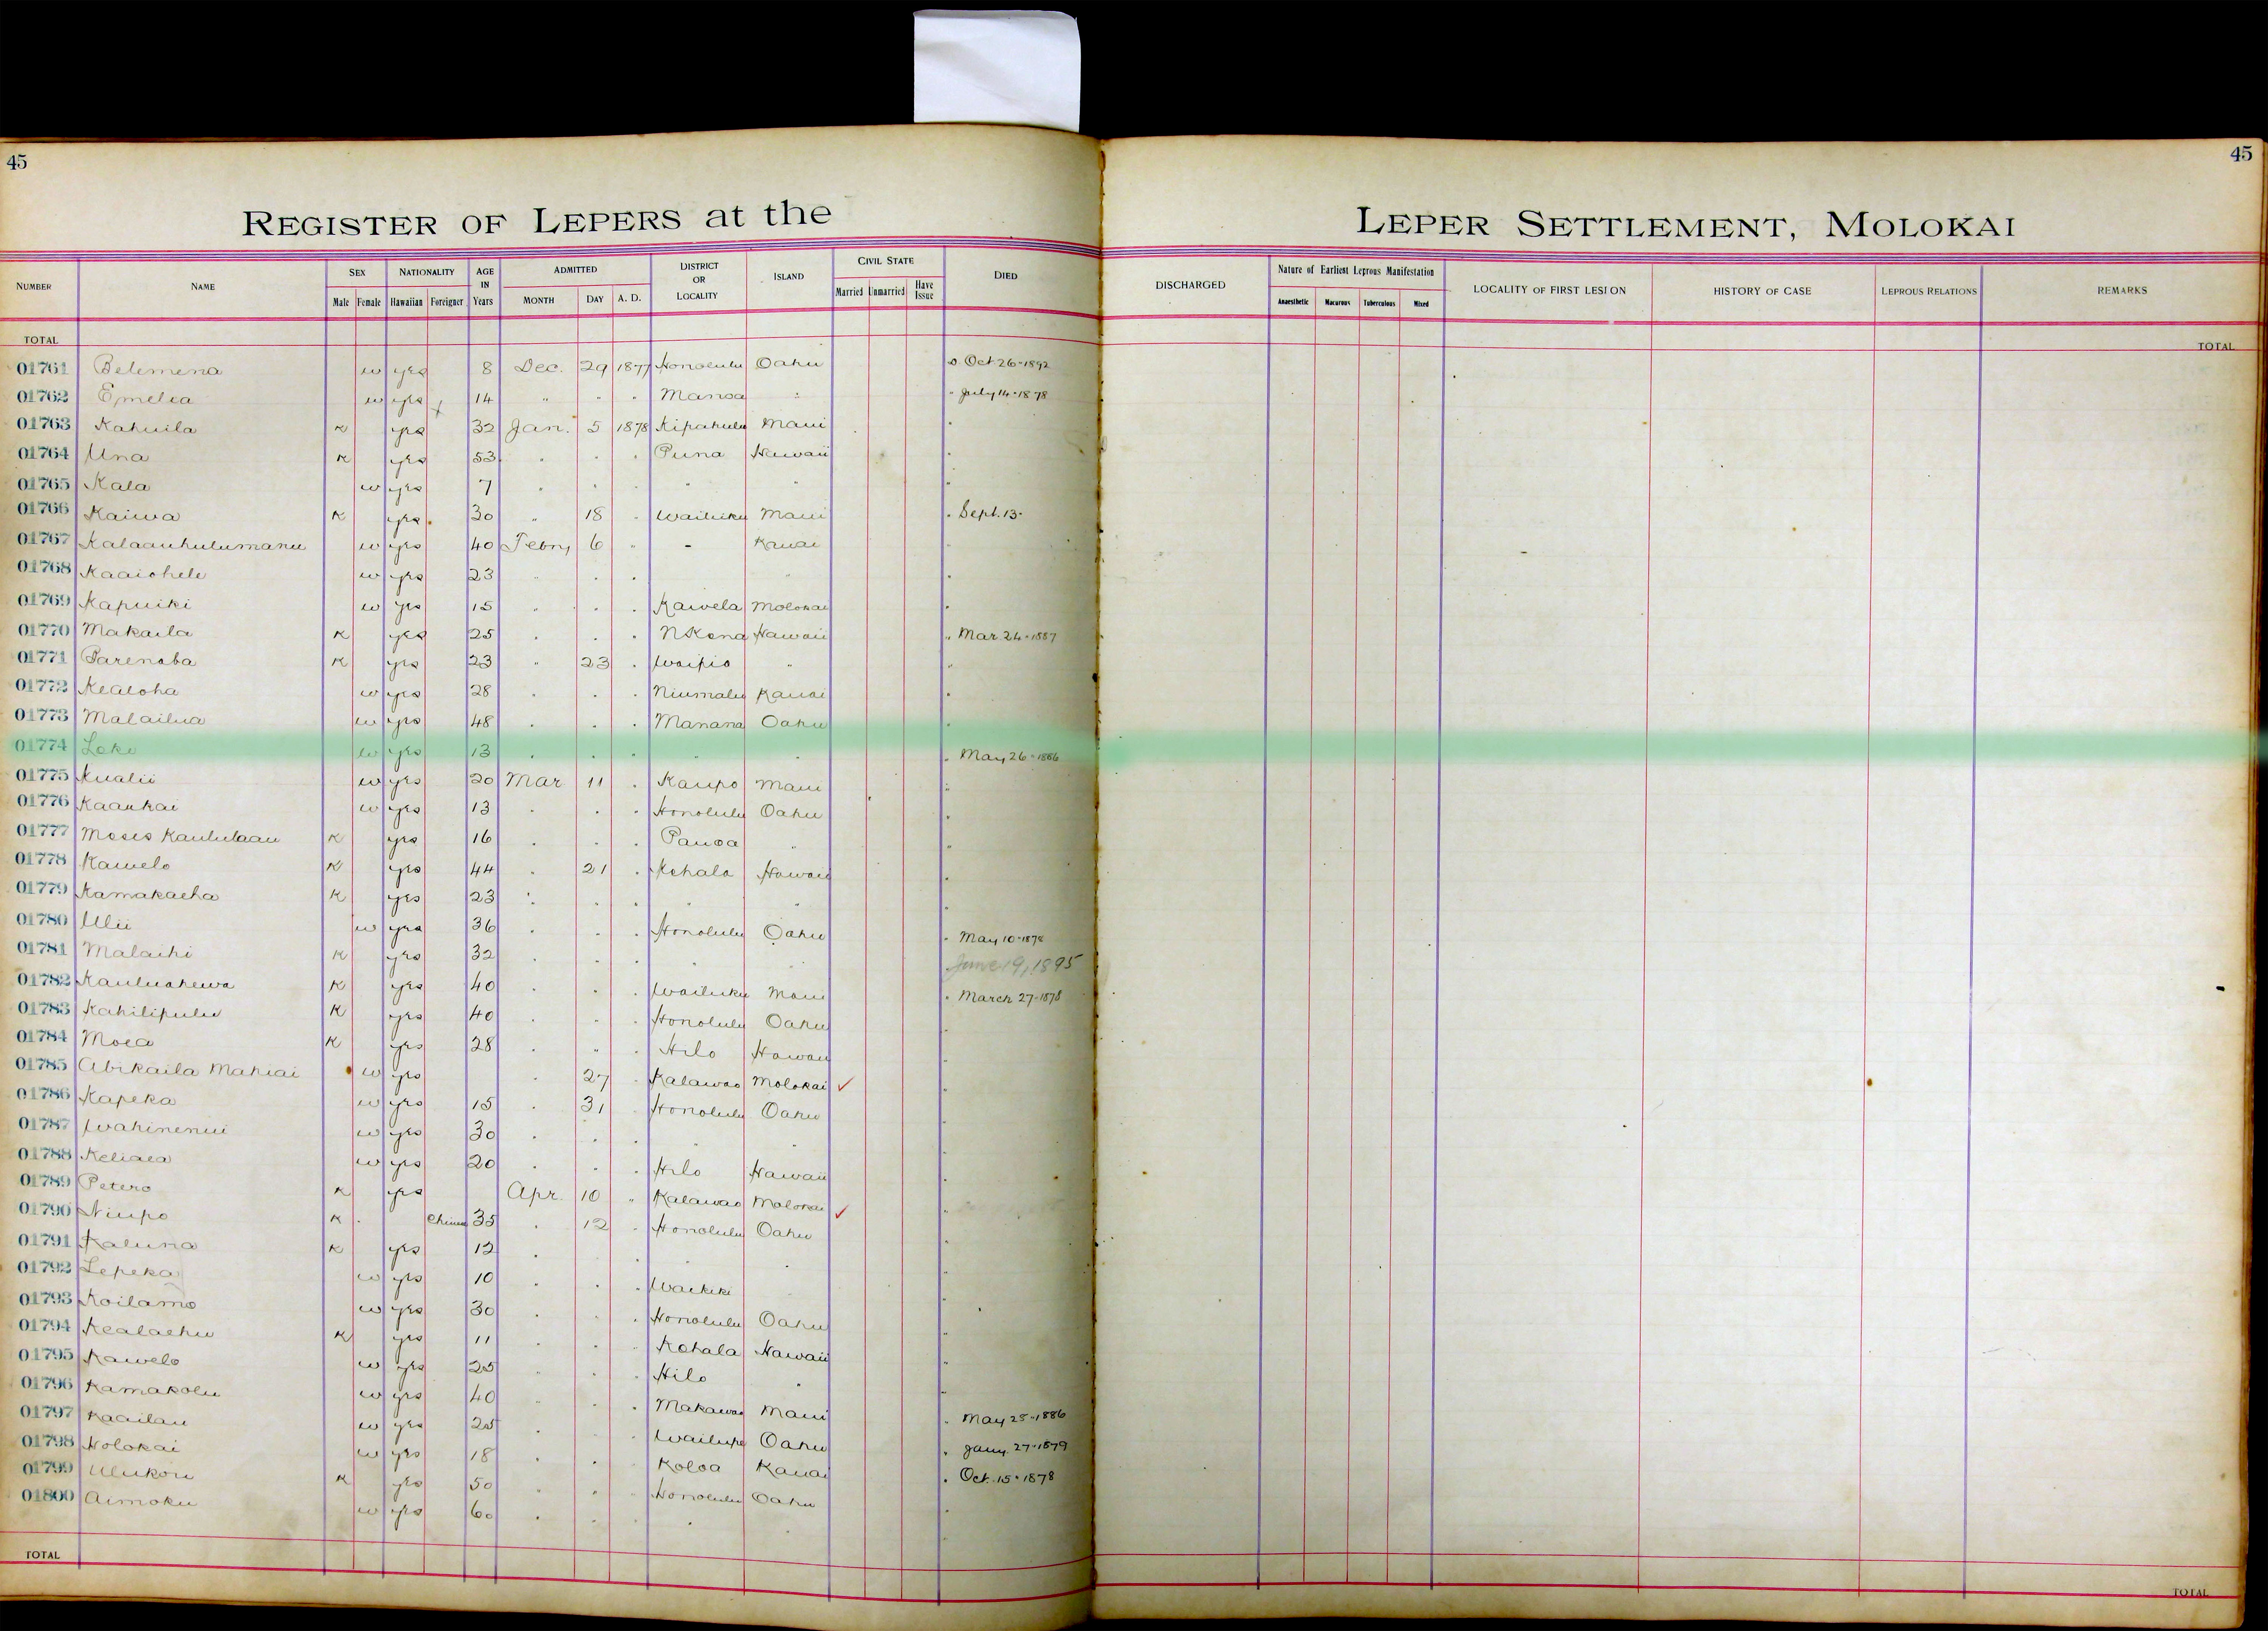 45
45
REGISTER OF LEPERS at the
LEPER SETTLEMENT, MOLOKAI
NUMBER NAME SEX NATIONALITY AGE IN Years ADMITTED DISTRICT OR LOCALITY ISLAND CIVIL STATE DIED
Male Female Hawaiian Foreigner MONTH DAY A. D. Married Unmarried Have Issue
DISCHARGED Nature of Earliest Leprous Manifestation LOCALITY OF FIRST LESION HISTORY OF CASE LEPROUS RELATIONS REMARKS
Anaesthetic Macurous Tuberculous Mixed
TOTAL
TOTAL
01761 Belemena w yes 8 Dec. 29 1877 Honolulu Oahu Oct 26-1892
01762 Emelia w yes 14 " " " Manoa " " July 14-1878
01763 Kahuila K yes 32 Jan. 5 1878 Kipahulu Maui "
01764 Una K yes 53 " " " Puna Hawaii "
01765 Kala w yes 7 " " " " " "
01766 Kaiwa K yes 30 " 18 " Wailuku Maui " Sept. 13-
01767 Kalaauhulumanu w yes 40 Febry 6 " - Kauai "
01768 Kaaiohele w yes 23 " " " " "
01769 Kapuiki w yes 15 " " " Kawela Molokai "
01770 Makaila K yes 25 " " " N Kona Hawaii " Mar 24-1887
01771 Parenaba K yes 23 " 23 " Waipio " "
01772 Kealoha w yes 28 " " " Niumalu Kauai "
01773 Malailua w yes 48 " " " Manana Oahu "
01774 Loke w yes 13 " " " " " " May 26-1886
01775 Kualii w yes 20 Mar 11 " Kaupo Maui "
01776 Kaaukai w yes 13 " " " Honolulu Oahu "
01777 Moses Kaululaau K yes 16 " " " Pauoa " "
01778 Kawelo K yes 44 " 21 " Kohala Hawaii "
01779 Kamakaeha K yes 23 " " " " " "
01780 Ulii w yes 36 " " " Honolulu Oahu " May 10-1878
01781 Malaihi K yes 32 " " " " " June 19, 1895
01782 Kauluahewa K yes 40 " " " Wailuku Maui " March 27-1878
01783 Kahilipulu K yes 40 " " " Honolulu Oahu "
01784 Moea K yes 28 " " " Hilo Hawaii "
01785 Abikaila Mahiai w yes " 27 " Kalawao Molokai ✓ "
01786 Kapeka w yes 15 " 31 " Honolulu Oahu "
01787 Wahinenui w yes 30 " " " " " "
01788 Keliaea w yes 20 " " " Hilo Hawaii "
01789 Petero K yes Apr. 10 " Kalawao Molokai ✓ "
01790 Niupo K Chinese 35 " 12 " Honolulu Oahu "
01791 Kaluna K yes 12 " " " "
01792 Lepeka w yes 10 " " " Waikiki "
01793 Koilamo w yes 30 " " " Honolulu Oahu "
01794 Kealaehu K yes 11 " " " Kohala Hawaii "
01795 Kawelo w yes 25 " " " Hilo " "
01796 Kamakolu w yes 40 " " " Makawao Maui " May 25-1886
01797 Kaailau w yes 25 " " " Wailupe Oahu " Jany. 27-1879
01798 Holokai w yes 18 " " " Koloa Kauai " Oct. 15-1878
01799 Ulukou K yes 50 " " " Honolulu Oahu "
01800 Aimoku w yes 60 " " " " "
TOTAL
TOTAL